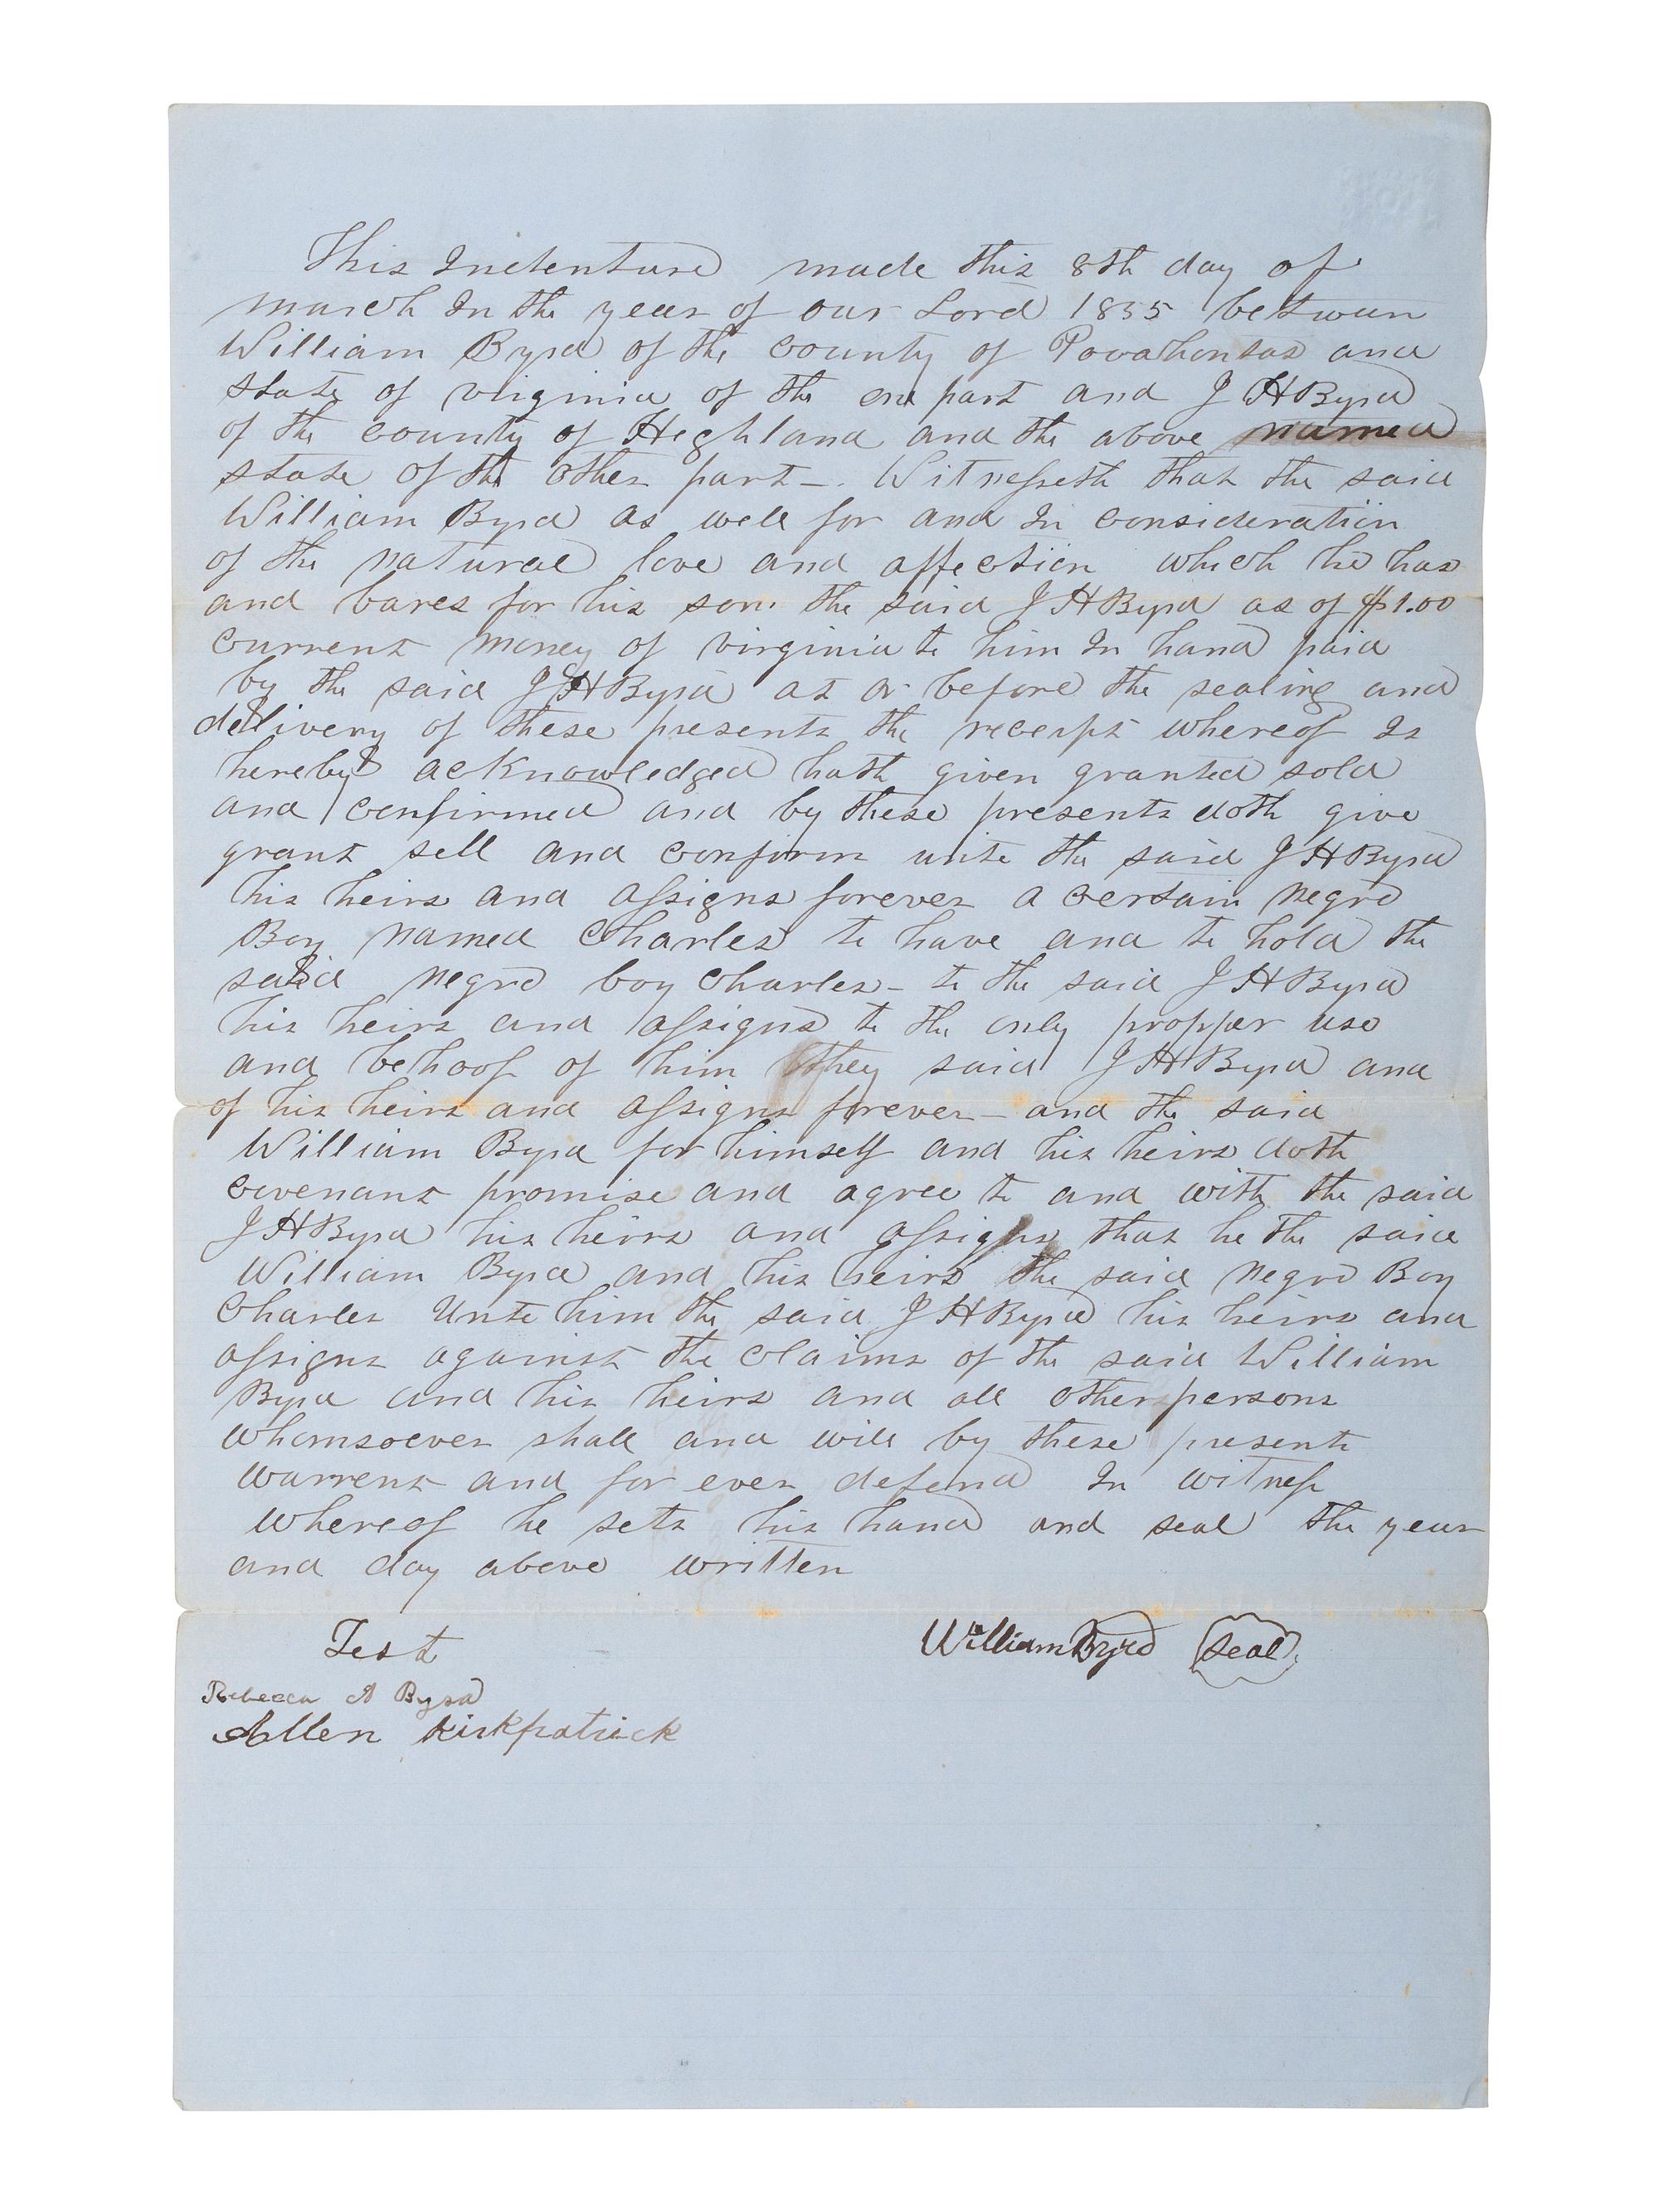 This Indenture made this 8th day of
march In the year of our Lord 1855 betwen
William Byrd of the county of Pocahontas and
state of virginia of the one part and J H Byrd
of the county of Heghland and the above named
state of the other part -. Witnesseth that the said
William Byrd as well for and In consideration
of the natural love and affection which he has
and bares for his son the said J H Byrd as of $1.00
current money of virginia to him In hand paid
by the said J H Byrd at or before the sealing and
dellivery of these presents the receipt whereof Is
hereby acknowledged hath given granted sold
and confirmed and by these presents doth give
grant sell and confirm unto the said J H Byrd
his heirs and assigns forever a certain negro
Boy named Charles to have and to hold the
said negro boy Charles - to the said J H Byrd
his heirs and assigns to the only propper use
and behoof of him they said J H Byrd and
of his heirs and assigns forever - and the said
William Byrd for himself and his heirs doth
covenant promise and agree to and with the said
J H Byrd his heirs and assigns that he the said
William Byrd and his heirs the said negro Boy
Charles Unto him the said J H Byrd his heirs and
assigns against the claims of the said William
Byrd and his heirs and all other persons
whomsoever shall and will by these presents
warrent and for ever defend In witness
whereof he sets his hand and seal the year
and day above written
Test William Byrd Seal
Rebecca A Byrd
Allen Kirkpatrick